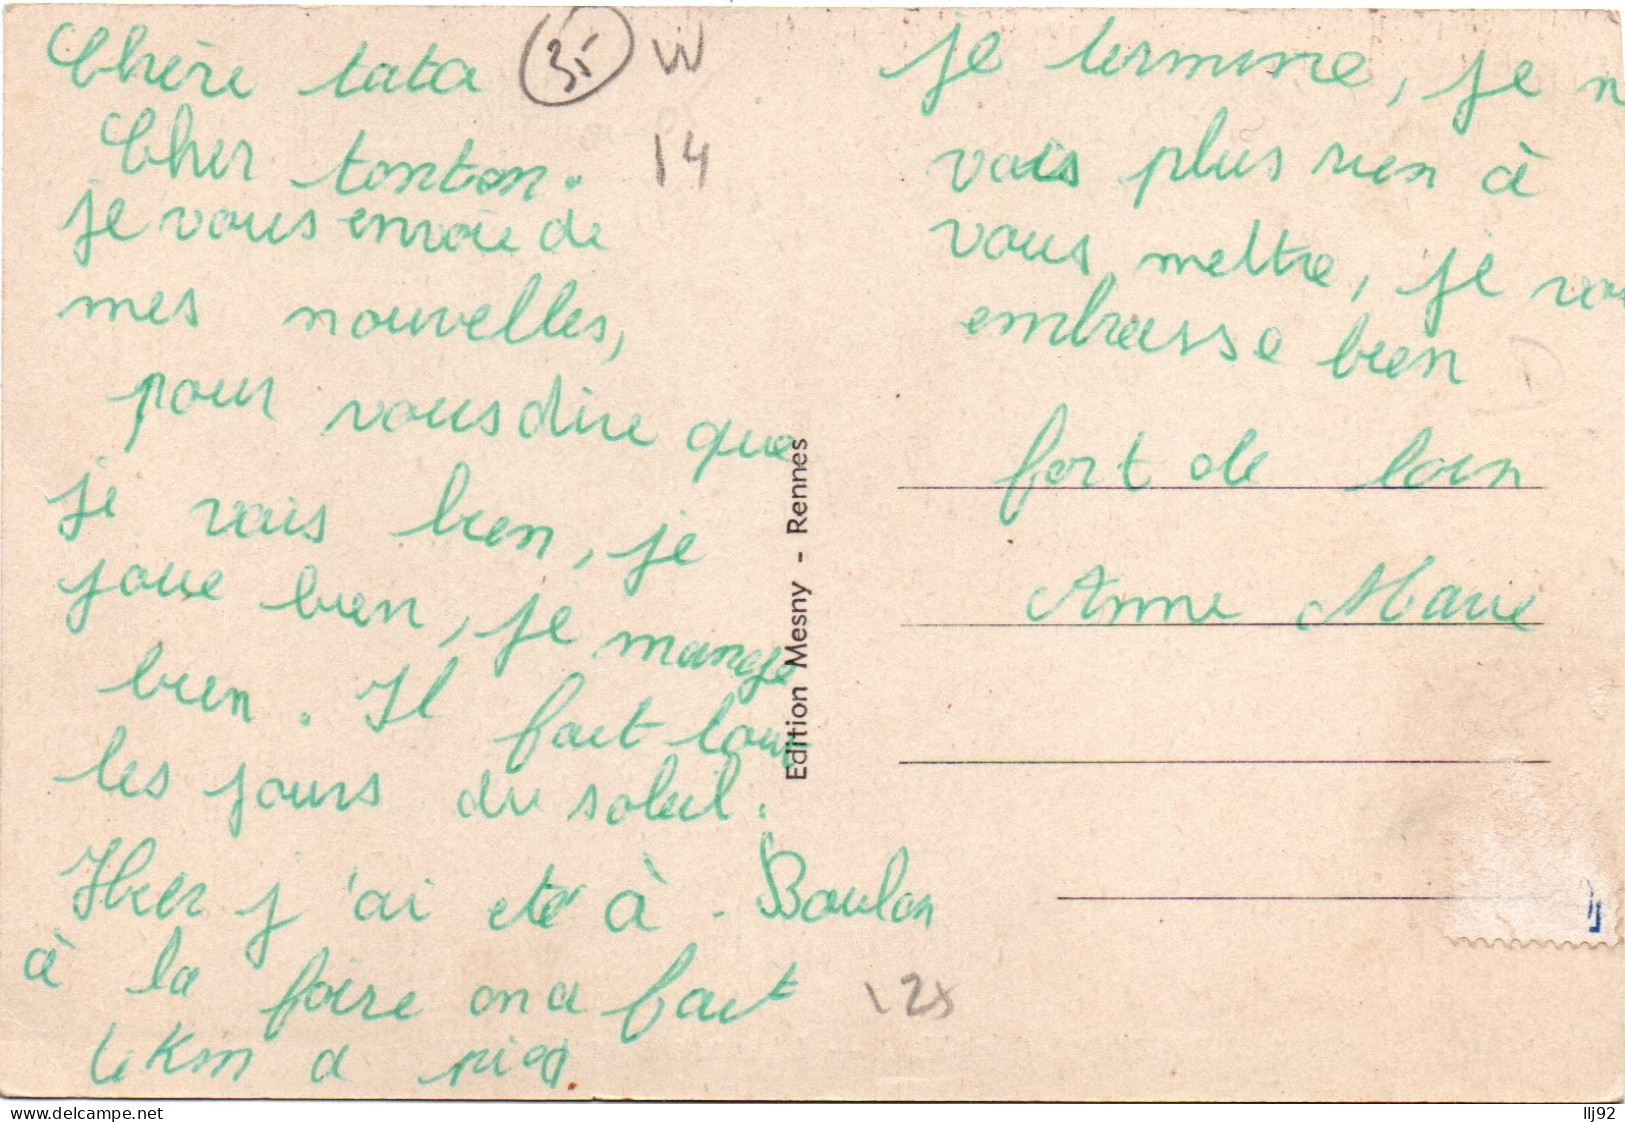 Chère tata
Cher tonton.
je vous envoie de
mes nouvelles,
pour vous dire que
je vais bien, je
joue bien, je mange
bien. Il fait tous
les jours du soleil.
Hier j'ai eté à Boulon
à la foire on a fait
4 Km a pied
35
W
14
Edition Mesny - Rennes
je termine, je n
vais plus rien à
vous mettre, je vou
embrasse bien
fort de loin
Anne Marie
D
12x
delcampe.net
llj92